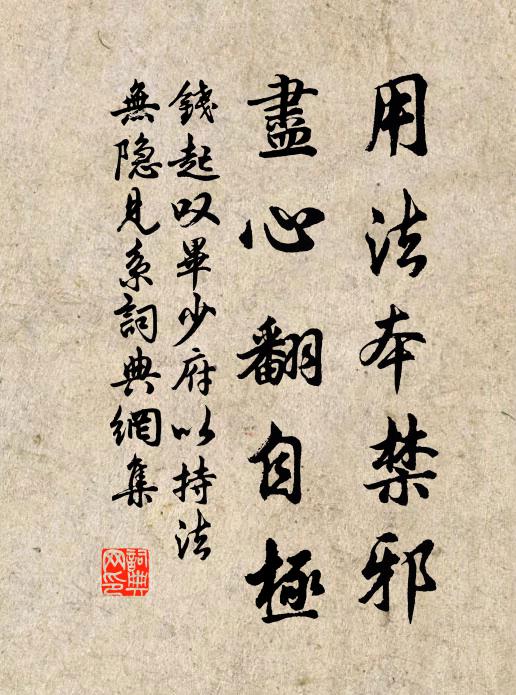 用法本禁邪
盡心翻自極
錢起叹畢少府以持法
無隐見系詞典網集
詞典网印